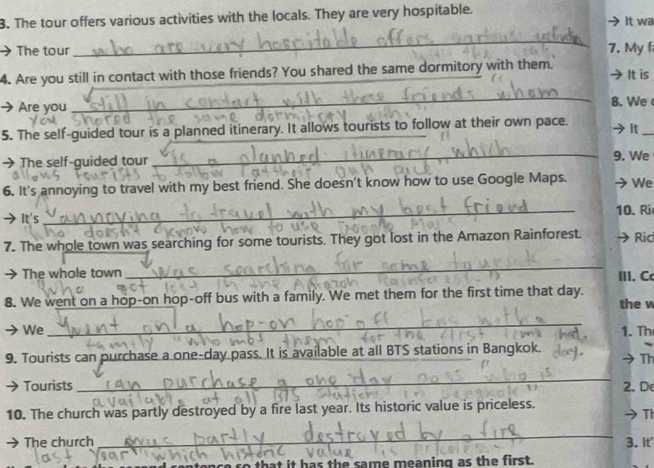 3. The tour offers various activities with the locals. They are very hospitable.
→ The tour who are very hospitable offers
4. Are you still in contact with those friends? You shared the same dormitory with them.
→ Are you still in contact with those friends whom
you shared the same dormitory with.
5. The self-guided tour is a planned itinerary. It allows tourists to follow at their own pace.
→ The self-guided tour is a planned itinerary, which
allows tourists to follow at their own pace.
6. It's annoying to travel with my best friend. She doesn't know how to use Google Maps.
→ It's annoying to travel with my best friend
who doesn't know how to use Google Maps.
7. The whole town was searching for some tourists. They got lost in the Amazon Rainforest.
→ The whole town was searching for some tourist
who got lost in the Amazon Rainforest.
8. We went on a hop-on hop-off bus with a family. We met them for the first time that day.
→ We went on a hop-on hop-off bus with a
family "who met them for the first time that day.
9. Tourists can purchase a one-day pass. It is available at all BTS stations in Bangkok.
→ Tourists can purchase a one day pass who is
available at all BTS stations in Bangkok
10. The church was partly destroyed by a fire last year. Its historic value is priceless.
→ The church was partly destroyed by a fire
last year which historic value is priceless.
so that it has the same meaning as the first.
→ It wa
7. My f
→ It is
8. We
→ It
9. We
→ We
10. Ri
→ Ric
III. C
the w
1. Th
→ Th
2. De
→ Th
3. It'